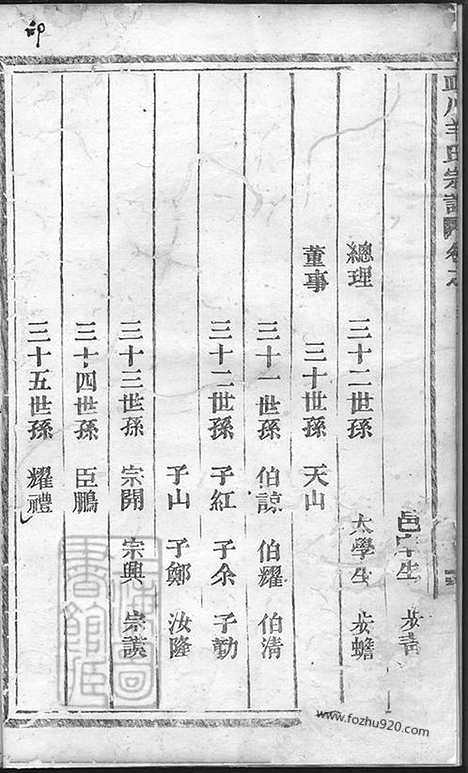 氏宗譜 卷之
邑庠生 步青
總理 三十二世孫 太學生 步蟾
董事 三十世孫 天山
三十一世孫 伯諒 伯耀 伯清
三十二世孫 子紅 子余 子勤
子山 子鄭 汝隆
三十三世孫 宗開 宗興 宗謨
三十四世孫 臣鵬
三十五世孫 耀禮
www.fozhu920.com